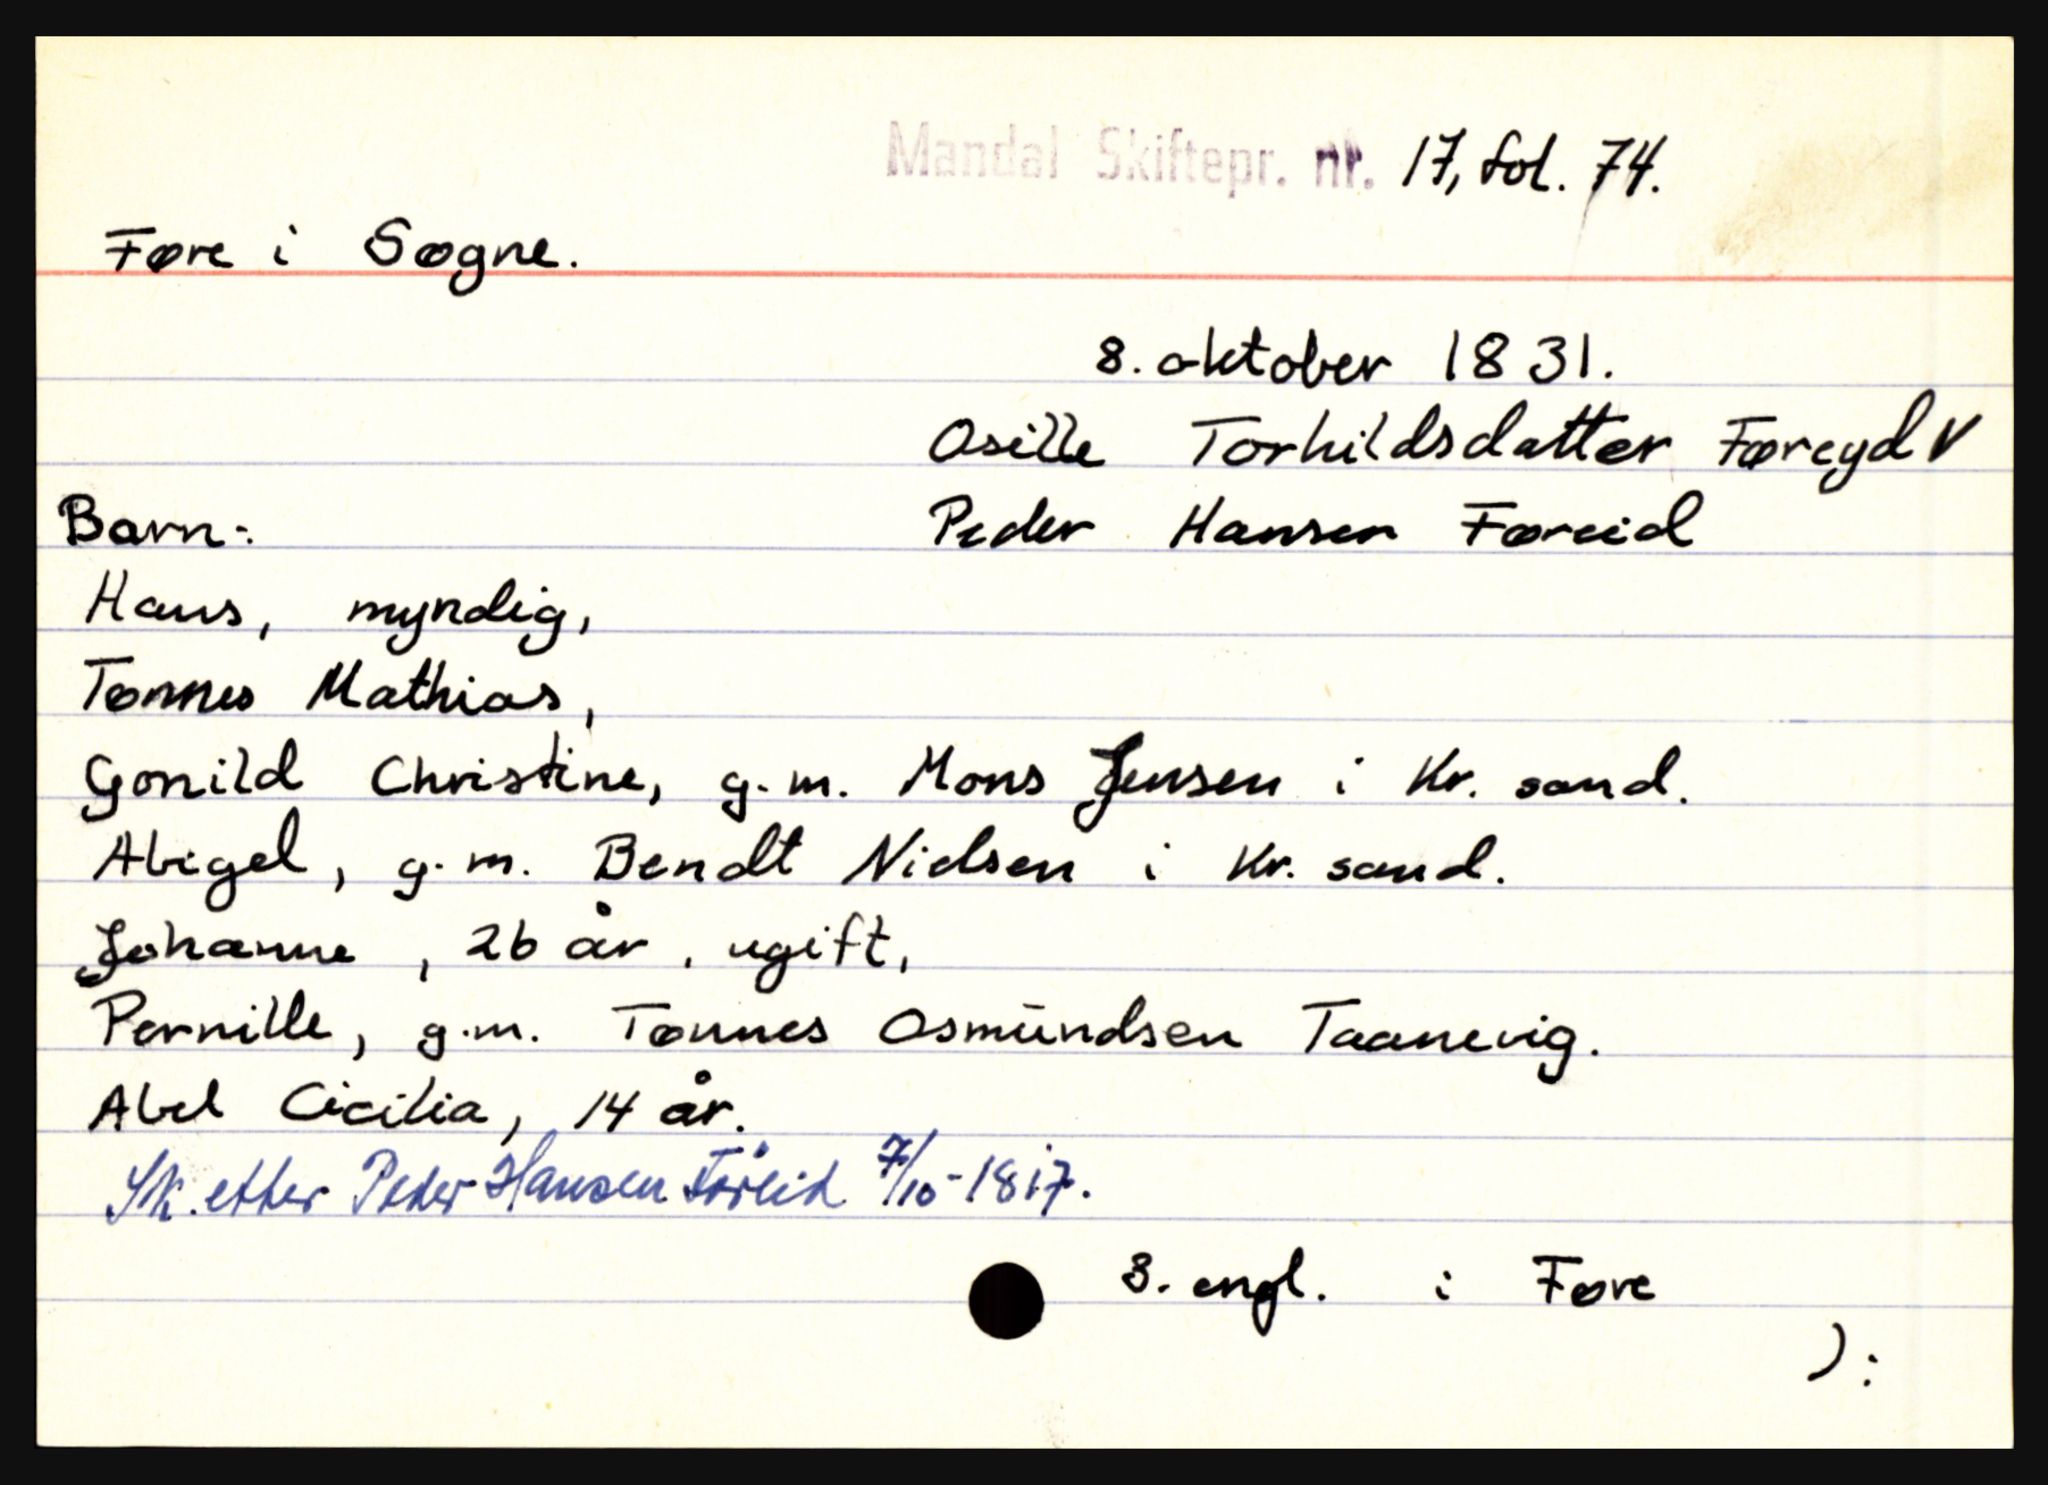 Mandal Skiftepr. nr. 17, fol. 74.
Føre i Søgne.
8. oktober 1831.
Osille Torkildsdatter Føreyd V
Barn:
Peder Hansen Føreid
Hans, myndig,
Tønnes Mathias,
Gonild Christine, g.m. Mons Jensen i Kr. sand.
Abigel, g.m. Bendt Nielsen i Kr. sand.
Johanne, 26 år, ugift,
Pernille, g.m. Tønnes Osmundsen Taanevig.
Abel Cicilia, 14 år.
Sk. etter Peder Hansen Föreid 7/10-1817.
3. engl. i Føre
):